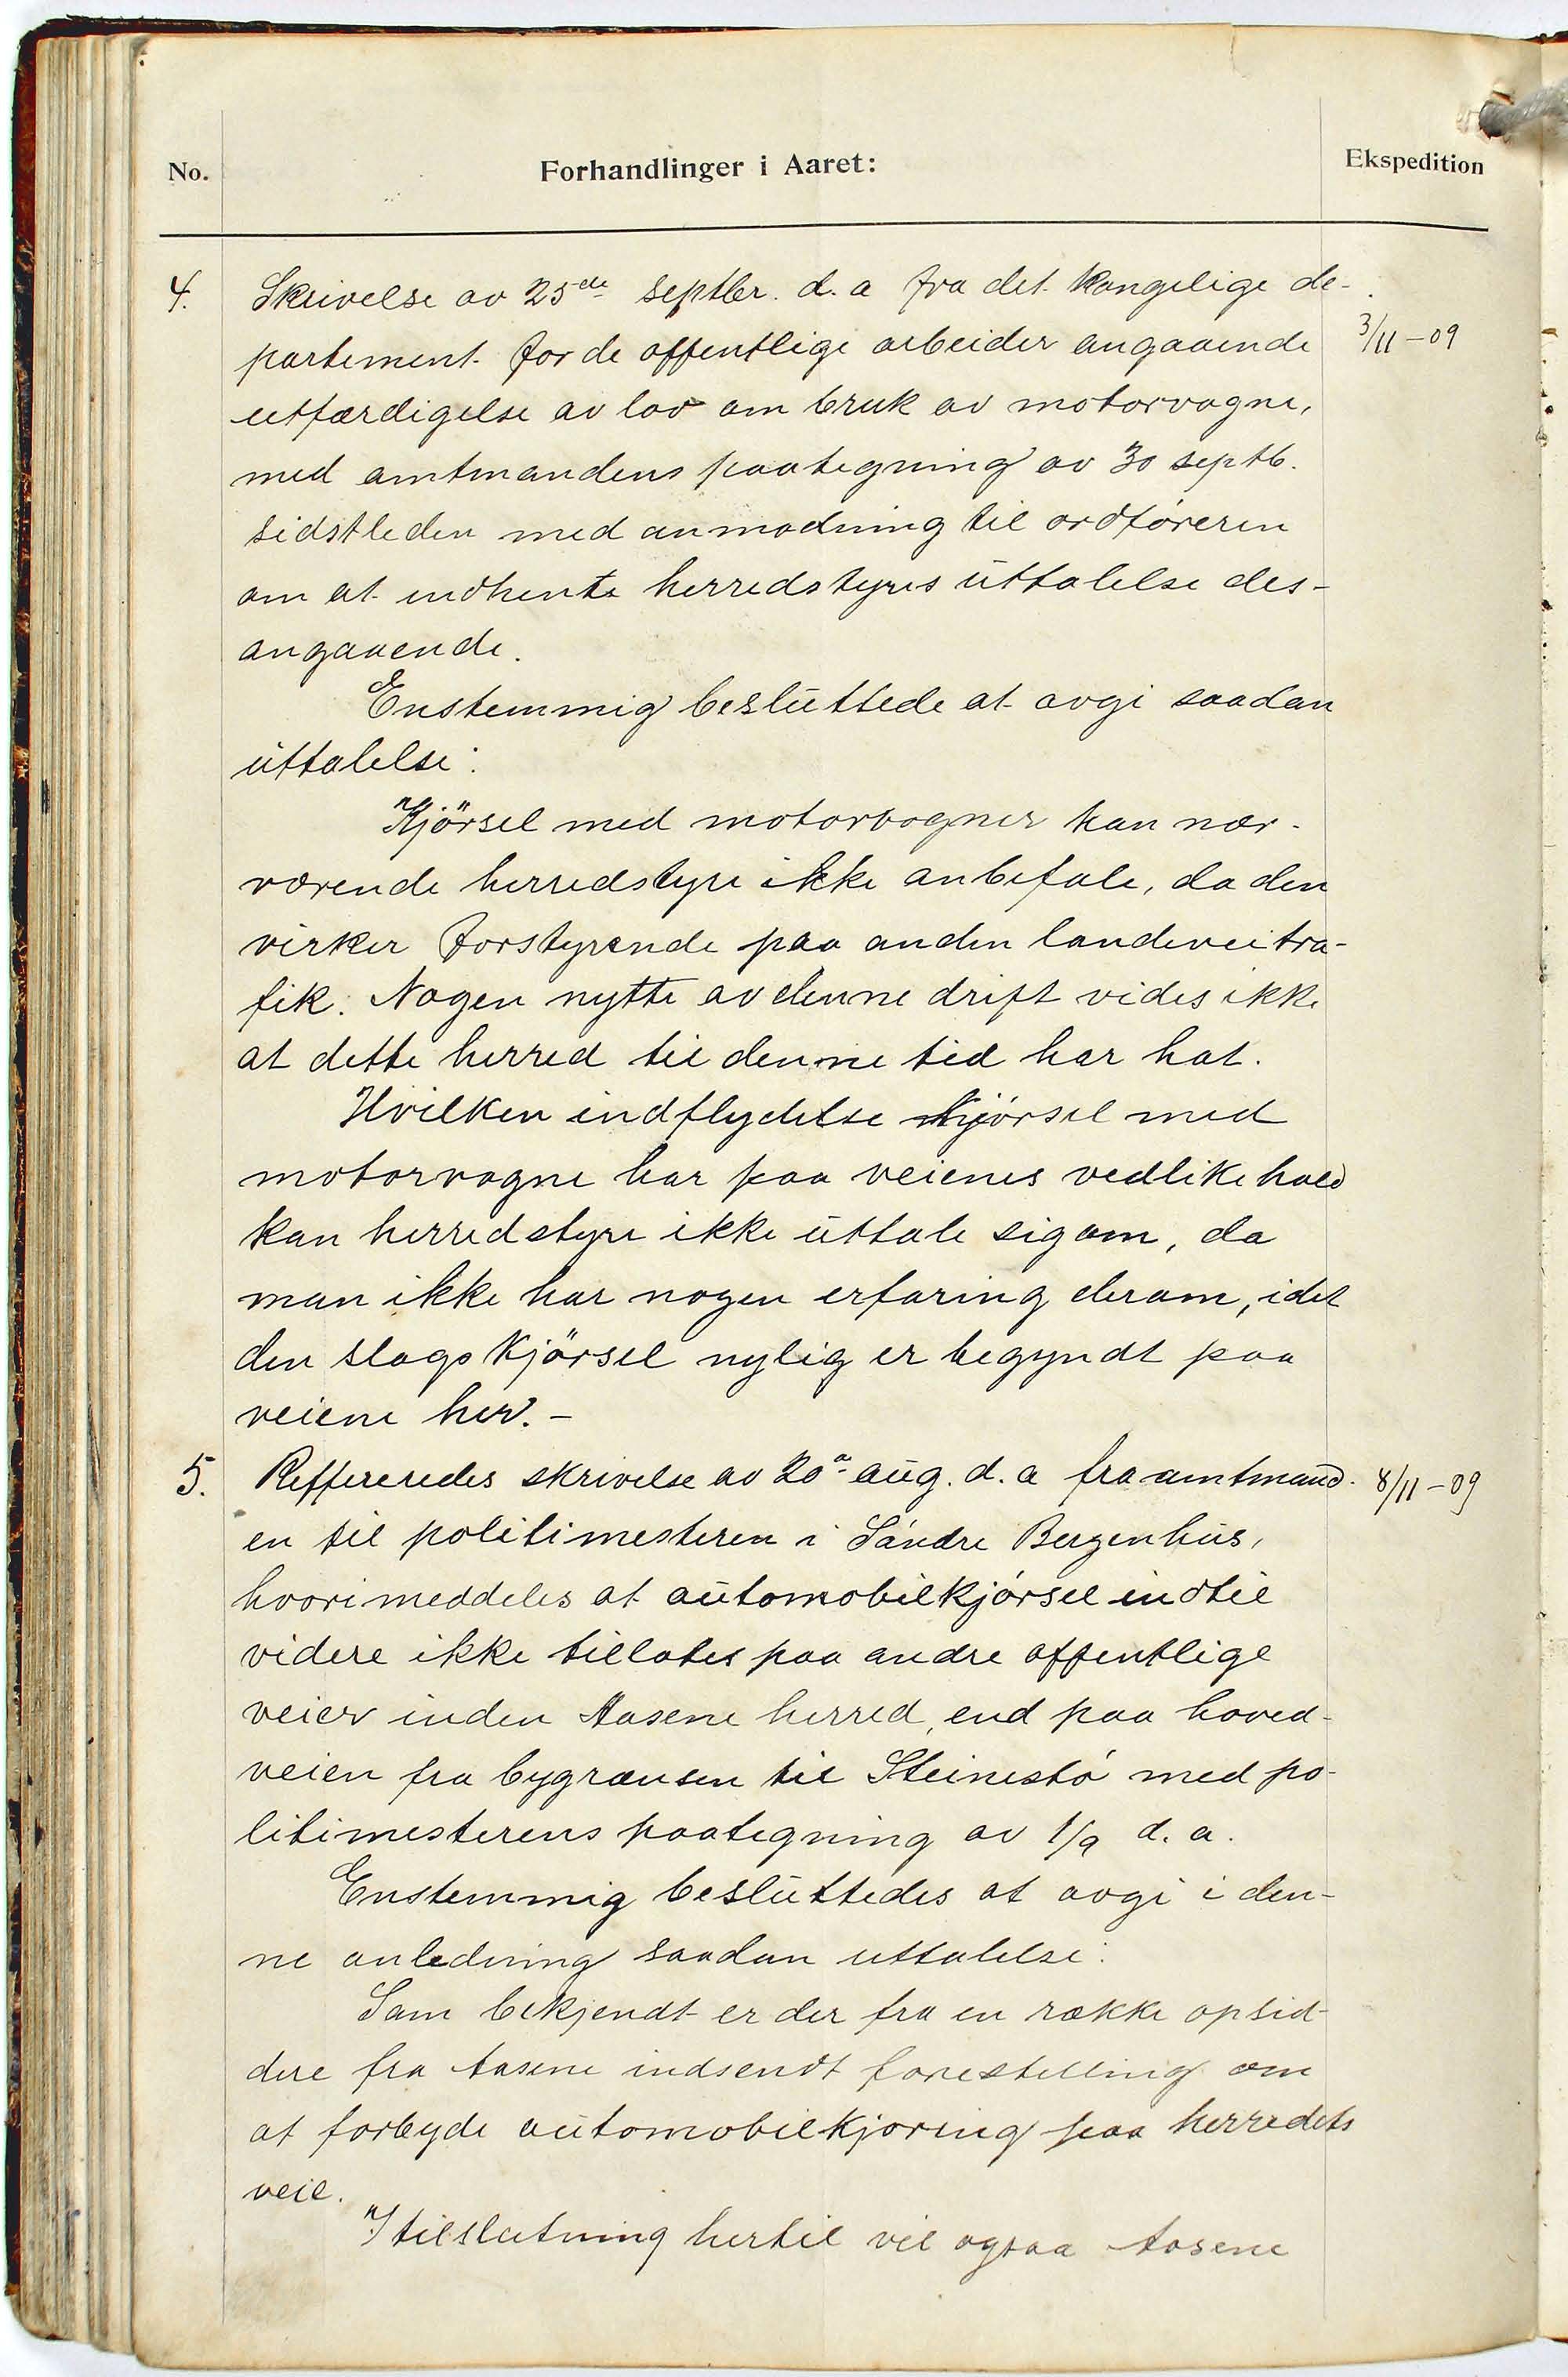 No.
Forhandlinger i Aaret:
Ekspedition
4. Skrivelse av 25de septbr. d. a fra det kongelige de-
partement for de offentlige arbeider angaaende 3/11-09
utfærdigelse av lov om bruk av motorvogne,
med amtmandens paategning av 30 septb.
sidstleden med anmodning til ordføreren
om at indhente herredstyres uttalelse des-
angaaende.
Enstemmig besluttede at avgi saadan
uttalelse:
Kjörsel med motorvogner kan nær-
værende herredstyre ikke anbefale, da den
virker forstyrende paa anden landeveitra-
fik. Nogen nytte av denne drift vides ikke
at dette herred til denne tid har hat.
Hvilken indflydelse kjørsel med
motorvogne har paa veienes vedlikehold
kan herredstyre ikke uttale sig om, da
man ikke har nogen erfaring derom, idet
den slags kjörsel nylig er begyndt paa
veiene her. -
5. Reffereredes skrivelse av 20a aug. d. a fra amtmand- 8/11-09
en til politimesteren i Søndre Bergenhus,
hvori meddeles at automobilkjørsel indtil
videre ikke tillates paa andre offentlige
veier inden Aasene herred, end paa hoved-
veien fra bygrænsen til Steinestø med po-
litimesterens paategning av 1/9 d. a.
Enstemmig besluttedes at avgi i den-
ne anledning saadan uttalelse:
Som bekjendt er der fra en række opsid-
dere fra Aasene indsendt forestilling om
at forbyde automobilkjøring paa herredets
veie.
I tilslutning hertil vil ogsaa Aasene